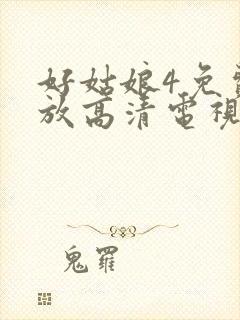 好姑娘4免
放高清電視
鬼羅